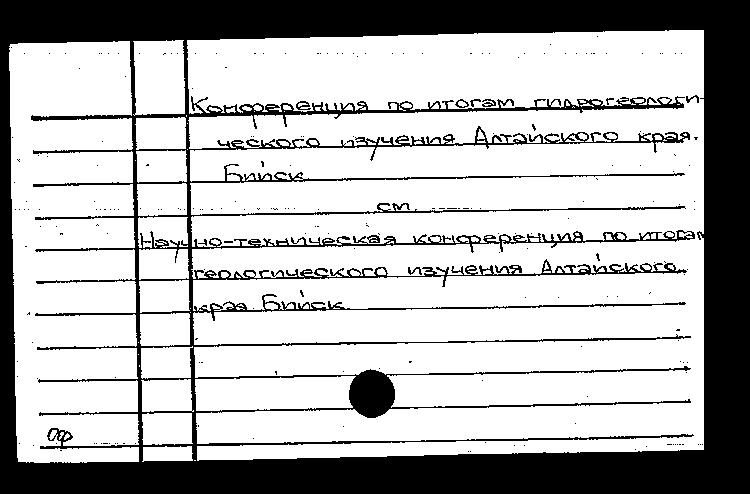 Конференция по итогам гидрогеологи-
ческого изучения Алтайского края.
Бийск
см.
Научно-техническая конференция по итогам
геологического изучения Алтайского
края Бийск
Пф